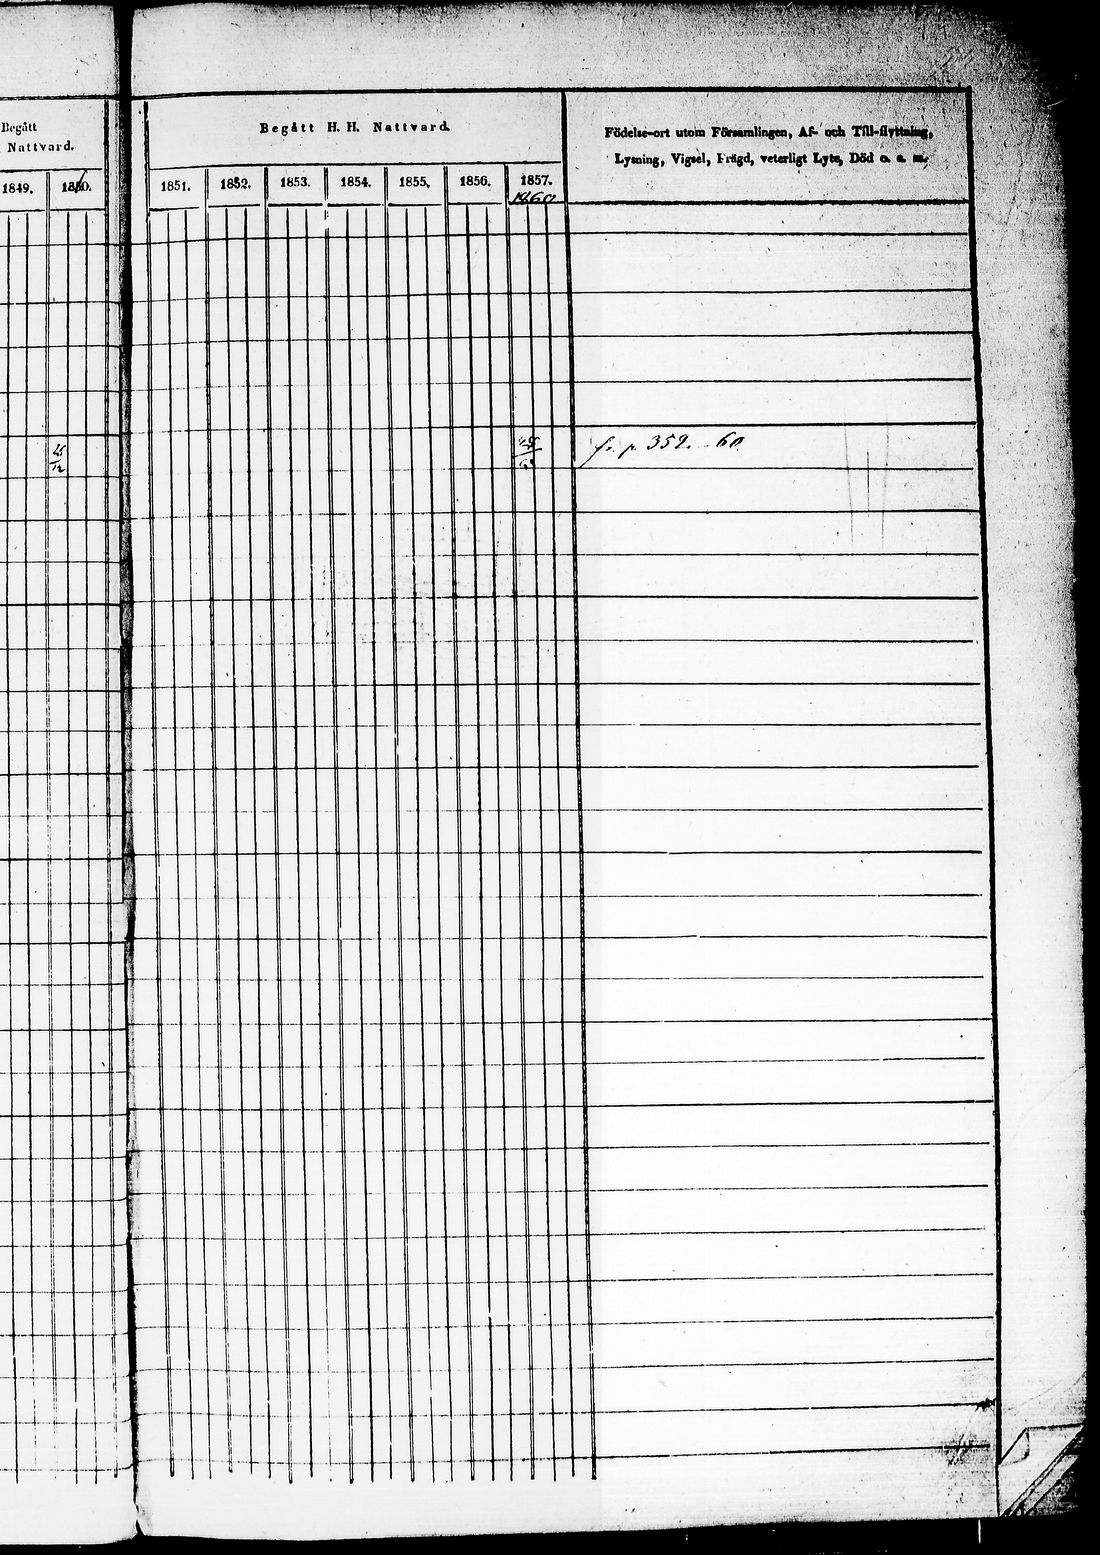 Begått
Nattvard.
1849.
Begått H. H. Nattvard.
1851. 1852. 1853. 1854. 1855. 1856. 1857.
1860
Födelse-ort utom Församlingen, Af- och Till-flyttning,
Lysning, Vigsel, Frägd, veterligt Lyte, Död o. s. m.
25
12
fr. p. 352. 60